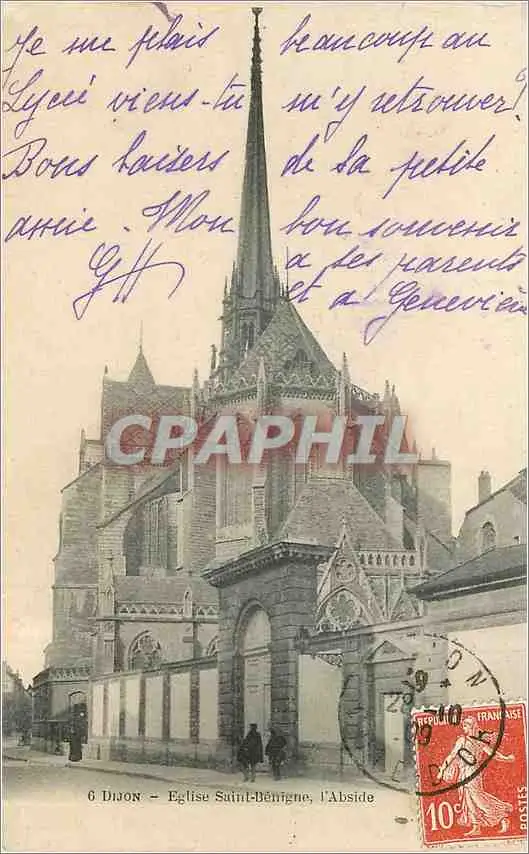 Je me plais beaucoup au
Lycée viens-tu m'y retrouver?
Bons baisers de ta petite
amie. Mon bon souvenir
à tes parents
GH et à Geneviève
CPAPHIL
DIJON
19
28-10
09
DIJON
REPUBLIQUE FRANÇAISE
10c
POSTES
6 DIJON – Eglise Saint-Bénigne, l'Abside